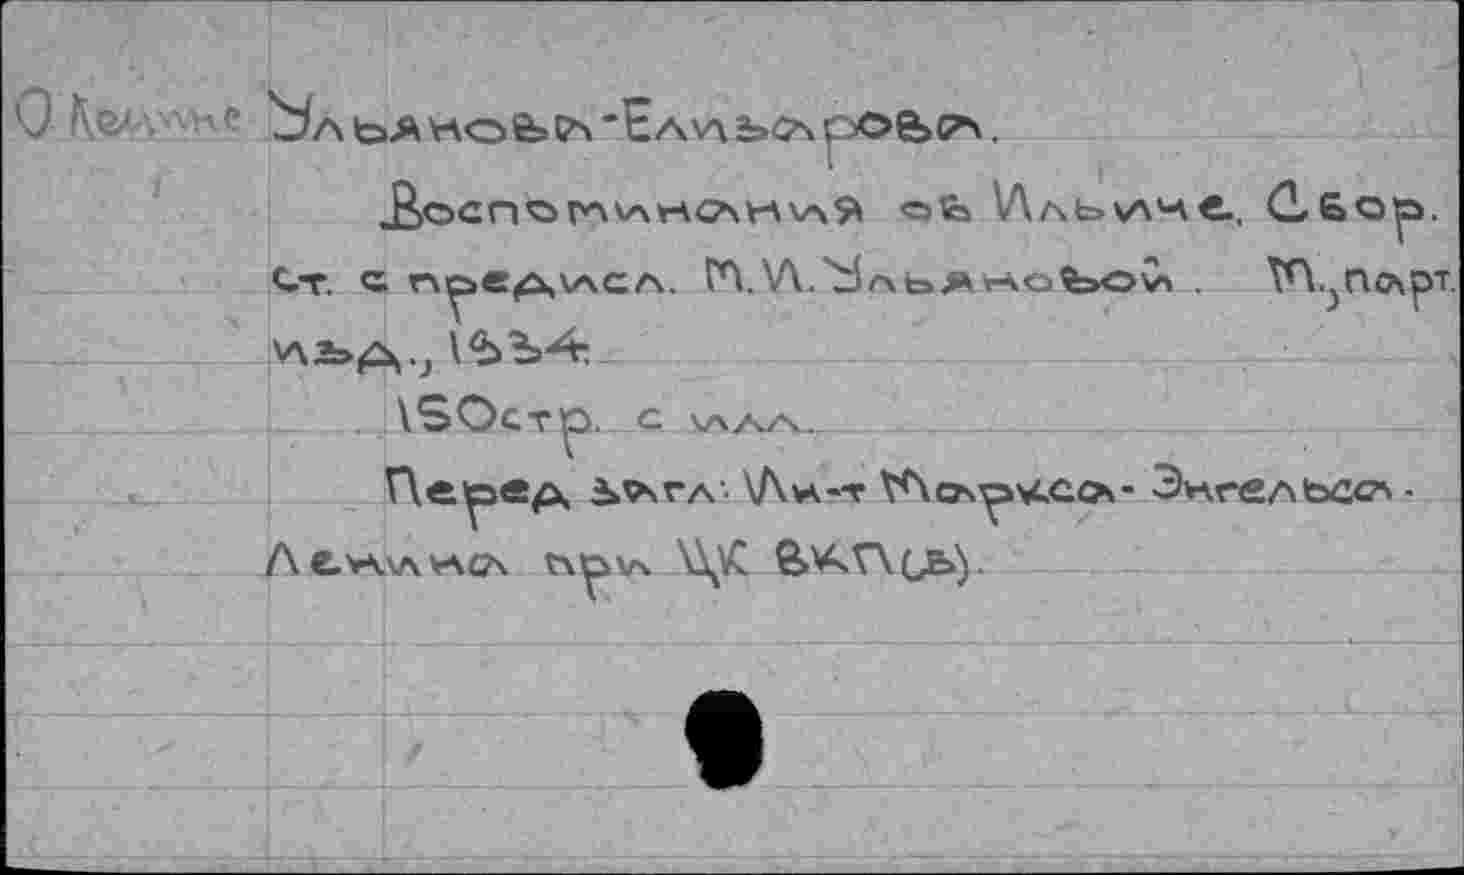 О Ленине Ульянова-Елизарова.
Воспоминания об Ильиче. Сбор.
ст. с предисл. М.И. Ульяновой. М., парт.
изд., 1934.
150стр. с илл.
Перед загл: Ин-т Маркса-Энгельса-
Ленина при ЦК ВКП(б).